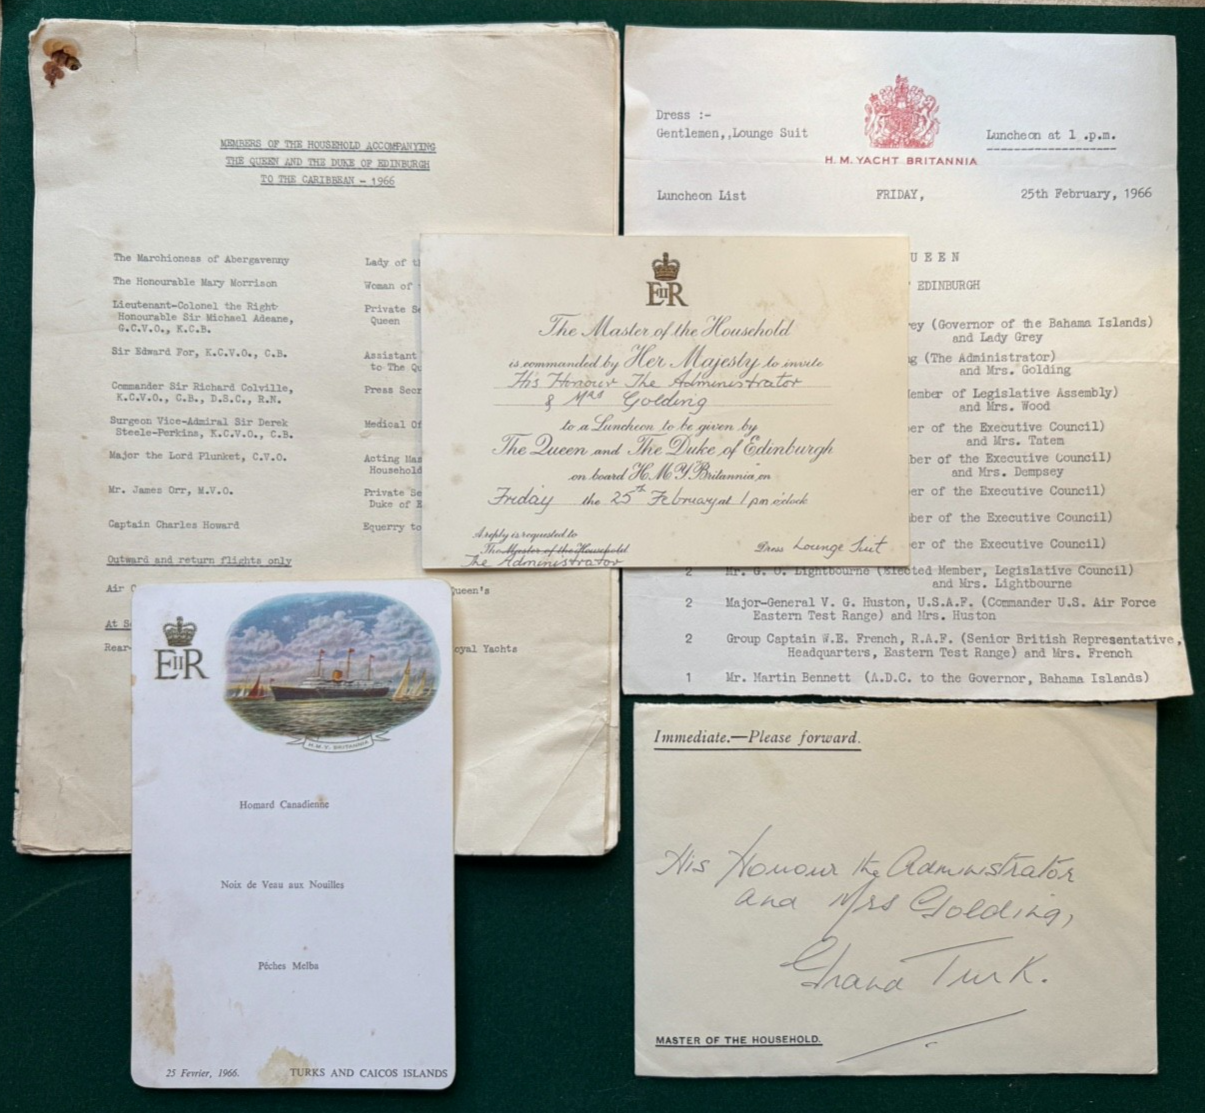 MEMBERS OF THE HOUSEHOLD ACCOMPANYING
THE QUEEN AND THE DUKE OF EDINBURGH
TO THE CARIBBEAN - 1966
The Marchioness of Abergavenny
Lady of t
The Honourable Mary Morrison
Woman of
Lieutenant-Colonel the Right
Honourable Sir Michael Adeane,
G.C.V.O., K.C.B.
Private Se
Queen
Sir Edward For, K.C.V.O., C.B.
Assistant
to The Qu
Commander Sir Richard Colville,
K.C.V.O., C.B., D.S.C., R.N.
Press Secr
Surgeon Vice-Admiral Sir Derek
Steele-Perkins, K.C.V.O., C.B.
Medical Of
Major the Lord Plunket, C.V.O.
Acting Mas
Household
Mr. James Orr, M.V.O.
Private Se
Duke of E
Captain Charles Howard
Equerry to
Outward and return flights only
Air C
Queen's
At S
Rear-
oyal Yachts
Dress :-
Gentlemen,,Lounge Suit
H.M. YACHT BRITANNIA
Luncheon at 1 .p.m.
Luncheon List
FRIDAY,
25th February, 1966
U E E N
EDINBURGH
ey (Governor of the Bahama Islands)
and Lady Grey
g (The Administrator)
and Mrs. Golding
ember of Legislative Assembly)
and Mrs. Wood
er of the Executive Council)
and Mrs. Tatem
ber of the Executive Council)
and Mrs. Dempsey
er of the Executive Council)
ber of the Executive Council)
er of the Executive Council)
2 Mr. G. O. Lightbourne (Elected Member, Legislative Council)
and Mrs. Lightbourne
2 Major-General V. G. Huston, U.S.A.F. (Commander U.S. Air Force
Eastern Test Range) and Mrs. Huston
2 Group Captain W.E. French, R.A.F. (Senior British Representative,
Headquarters, Eastern Test Range) and Mrs. French
1 Mr. Martin Bennett (A.D.C. to the Governor, Bahama Islands)
EIIR
The Master of the Household
is commanded by Her Majesty to invite
His Honour The Administrator
& Mrs Golding
to a Luncheon to be given by
The Queen and The Duke of Edinburgh
on board H.M.Y. "Britannia", on
Friday the 25th February at 1 pm o'clock
A reply is requested to
The Master of the Household
The Administrator
Dress Lounge Suit
EIIR
H.M.Y. BRITANNIA
Homard Canadienne
Noix de Veau aux Nouilles
Pêches Melba
25 Fevrier, 1966.
TURKS AND CAICOS ISLANDS
Immediate.—Please forward.
His Honour the Administrator
and Mrs Golding,
Grand Turk.
MASTER OF THE HOUSEHOLD.